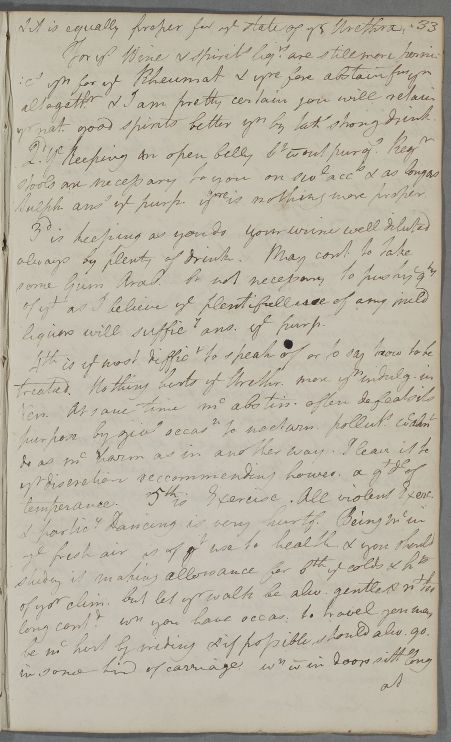 & it is equally proper for ye state of yr Urethra. 33
For ye Wine & spirits liqrs are still more perni-
:cs yn for ye Rheumat & yrefore abstain from ym
altogethr & I am pretty certain you will retain
yr nat. good spirits better yn by takg strong drink.
2d. Ye Keeping an open belly bt wtout purgg. Regr
stools are necessary to you on sevl accts & as long as
Sulph ansrs yt purp. yre is nothing more proper
3d is keeping as you do your urine well diluted
always by plenty of drink. May cont. to take
some Gum Arab. bt not necessary to push ye qty
of yt as I believe ye plentifull use of any mild
liquors will sufficy ans. ye purp.
4th is ye most diffict to speak of or to say how to be
treated. Nothing hurts ye Urethr. more yn indulg. in
ven. At same time mh abstin. often defeats its
purpose by givg occasn to nocturn. pollut. wch
do as mh harm as in another way. I leave it to
yr discretion reccommending howevr. a gt d of
temperance. 5th is Exercise. All violent Exerc.
& particy Dancing is very hurtf. Being mh in
ye fresh air is of gt use to health & you should
study it making allowance for ye colds & hts
of your clim. but let yr walk be alw. gentle & nt too
long contd. wn you have occas. to travel you may
be mh hurt by riding & if possible should alw. go
in some kind of carriage. wn in doors sitt long
at